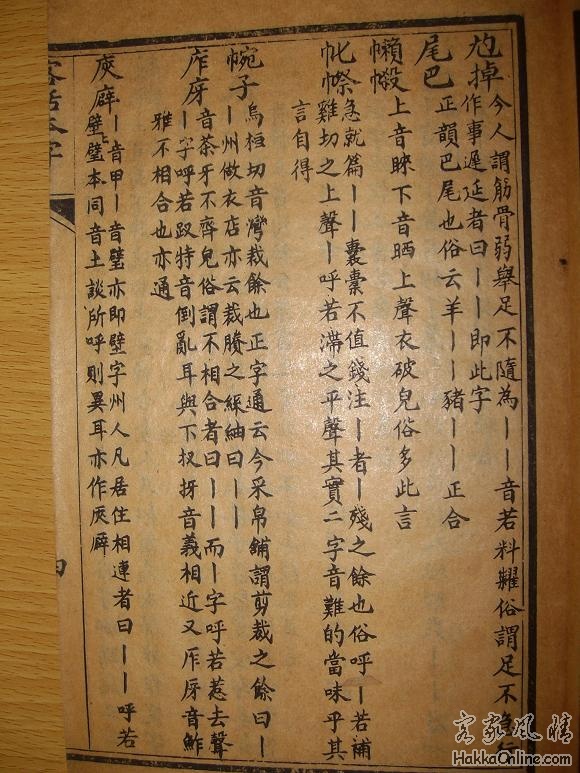 尥掉今人謂筋骨弱舉足不隨為丨丨音若料糶俗謂足不
作事遲延者曰丨丨即此字
尾巴正韻巴尾也俗云羊丨丨豬丨丨正合
上音睞下音晒上聲衣破皃俗多此言
急就篇丨丨囊橐不值錢注丨者丨殘之餘也俗呼丨若補
雞切之上聲丨呼若滯之平聲其實二字音難的當味乎其
言自得
帵子烏桓切音灣裁餘也正字通云今采帛鋪謂剪裁之餘曰丨
丨州做衣店亦云裁賸之綵紬曰丨丨
厏厊音茶牙不齊皃俗謂不相合者曰丨丨而丨字呼若惹去聲
丨字呼若㕚特音倒亂耳與下杈捓音義相近又厏厊音鮓
雅不相合也亦通
丨音甲丨音璧亦即壁字州人凡居住相連者曰丨丨呼若
壁璧本同音土談所呼則異耳亦作
客話本字
四
客家風情
HakkaOnline.com